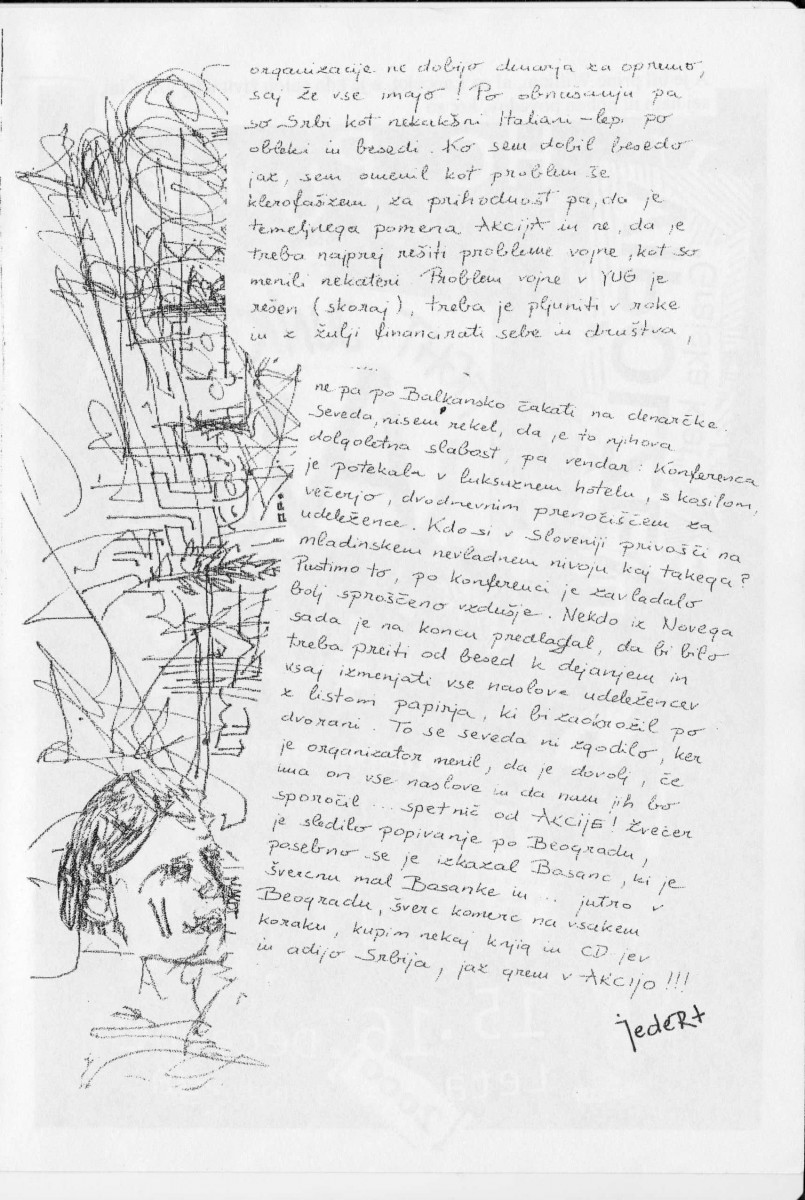 organizacije ne dobijo denarja za opremo,
saj že vse imajo! Po obnašanju pa
so Srbi kot nekakšni Italiani – lepi po
obleki in besedi. Ko sem dobil besedo
jaz, sem omenil kot problem še
klerofašizem, za prihodnost pa, da je
temeljnega pomena AKCIJA in ne, da je
treba najprej rešiti probleme vojne, kot so
menili nekateri. Problem vojne v YUG je
rešen (skoraj), treba je pljuniti v roke
in z žulji financirati sebe in društva,
ne pa po Balkansko čakati na denarčke.
Seveda, nisem rekel, da je to njihova
dolgoletna slabost, pa vendar: Konferenca
je potekala v luksuznem hotelu, s kosilom,
večerjo, dvodnevnim prenočiščem za
udeležence. Kdo si v Sloveniji privošči na
mladinskem nevladnem nivoju kaj takega?
Pustimo to, po konferenci je zavladalo
bolj sproščeno vzdušje. Nekdo iz Novega
sada je na koncu predlagal, da bi bilo
treba preiti od besed k dejanjem in
vsaj izmenjati vse naslove udeležencev
z listom papirja, ki bi zaokrožil po
dvorani. To se seveda ni zgodilo, ker
je organizator menil, da je dovolj, če
ima on vse naslove in da nam jih bo
sporočil ... spet nič od AKCIJE! Zvečer
je sledilo popivanje po Beogradu,
posebno se je izkazal Bosanc, ki je
švercnu mal Bosanke in .. jutro v
Beogradu, šverc komerc na vsakem
koraku, kupim nekaj knjig in CD jev
in adijo Srbija, jaz grem v AKCIJO!!!
jedeRt
15.
16.
2000